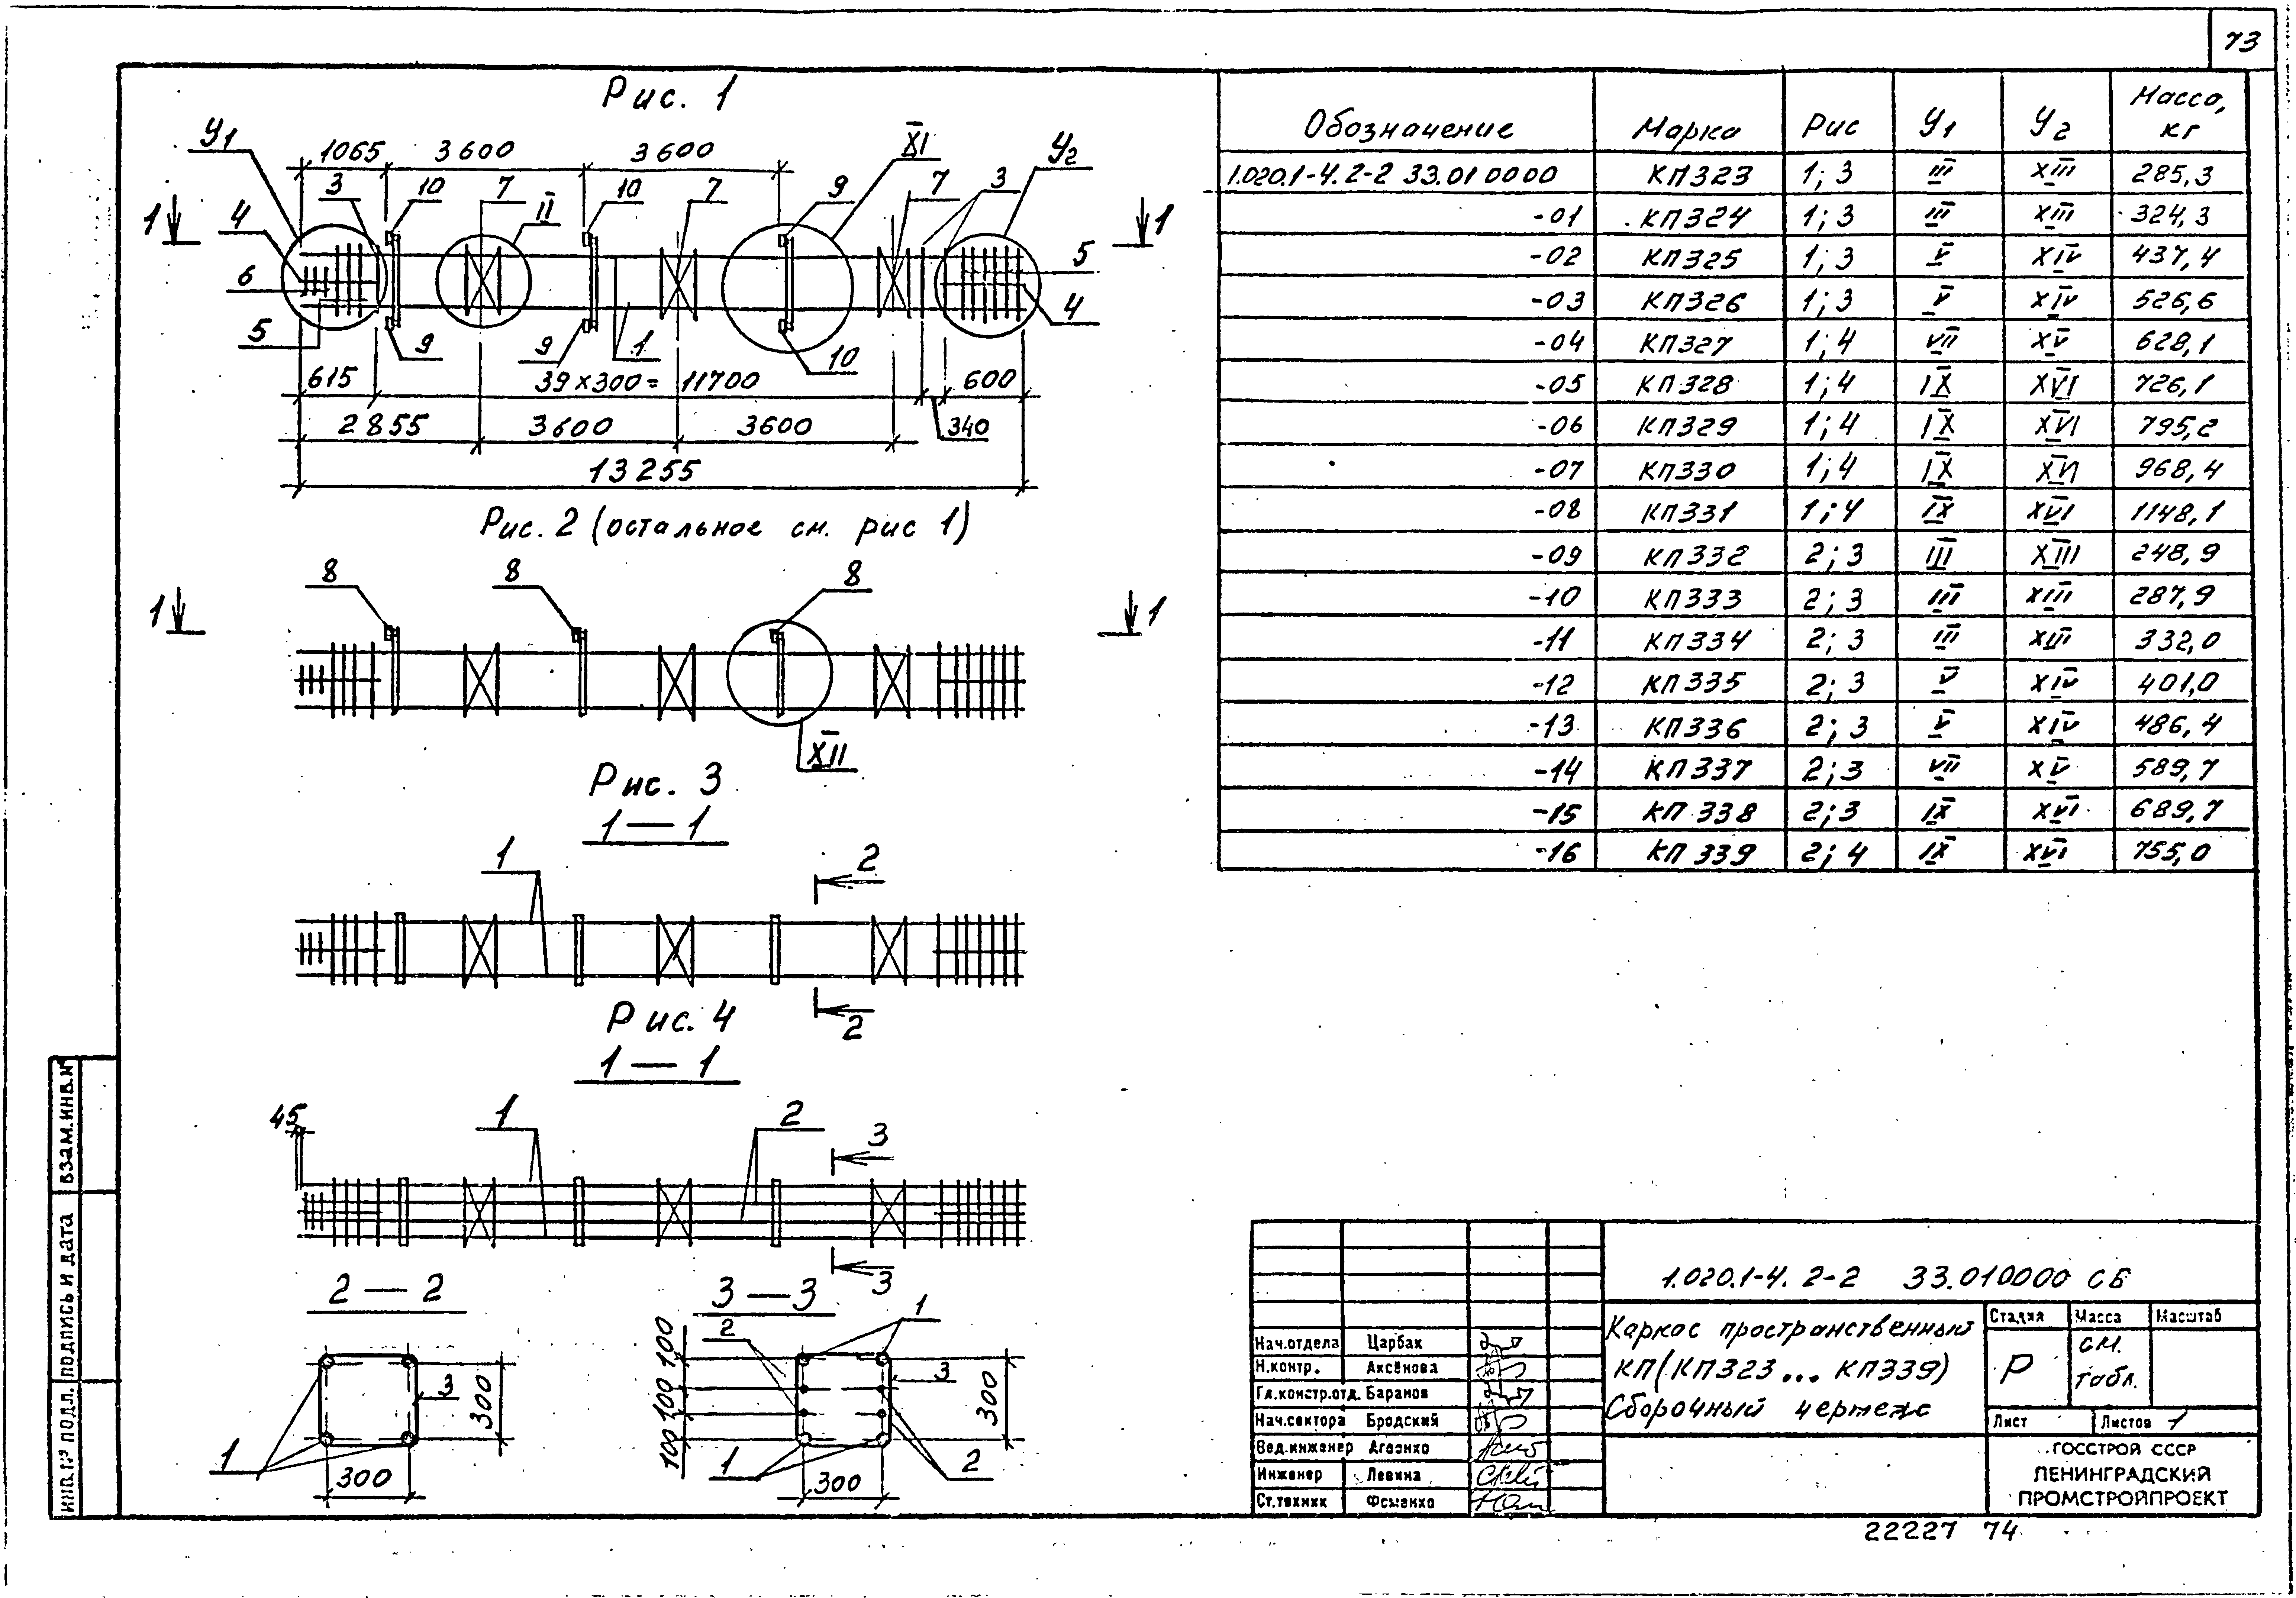 73
Рис. 1
У1
1065 3600 3600
XI
У2
3 10 7 II 10 7 9 7 3
1 4 1
6 5 5 4
9 9 1 10
615 39х300=11700 600
2855 3600 3600 340
13255
Рис. 2 (остальное см. рис 1)
8 8 8
1 1
XII
Рис. 3
1—1
1 2
2
Рис. 4
1—1
45 1 2 3
3
2—2
3
1
300
300
3—3
1
2
3
100
100
100
300
1 2
300
Обозначение Марка Рис У1 У2 Масса, кг
1.020.1-4.2-2 33.010000 КП323 1; 3 III XIII 285,3
-01 КП324 1; 3 III XIII 324,3
-02 КП325 1; 3 V XIV 437,4
-03 КП326 1; 3 V XIV 526,6
-04 КП327 1; 4 VII XV 628,1
-05 КП328 1; 4 IX XVI 726,1
-06 КП329 1; 4 IX XVI 795,2
-07 КП330 1; 4 IX XVI 968,4
-08 КП331 1; 4 IX XVI 1148,1
-09 КП332 2; 3 III XIII 248,9
-10 КП333 2; 3 III XIII 287,9
-11 КП334 2; 3 III XIII 332,0
-12 КП335 2; 3 V XIV 401,0
-13 КП336 2; 3 V XIV 486,4
-14 КП337 2; 3 VII XV 589,7
-15 КП338 2; 3 IX XVI 689,7
-16 КП339 2; 4 IX XVI 755,0
1.020.1-4. 2-2 33.010000 СБ
Каркас пространственный
КП(КП323... КП339)
Сборочный чертеж
Стадия Масса Масштаб
Р см. табл.
Лист Листов 1
ГОССТРОЙ СССР
ЛЕНИНГРАДСКИЙ
ПРОМСТРОЙПРОЕКТ
Нач.отдела Царбак
Н.контр. Аксёнова
Гл.констр.отд. Баранов
Нач.сектора Бродский
Вед.инженер Агеенко
Инженер Левина
Ст.техник Фоменко
ИНВ.№ ПОДЛ. ПОДПИСЬ И ДАТА ВЗАМ.ИНВ.№
22227 74